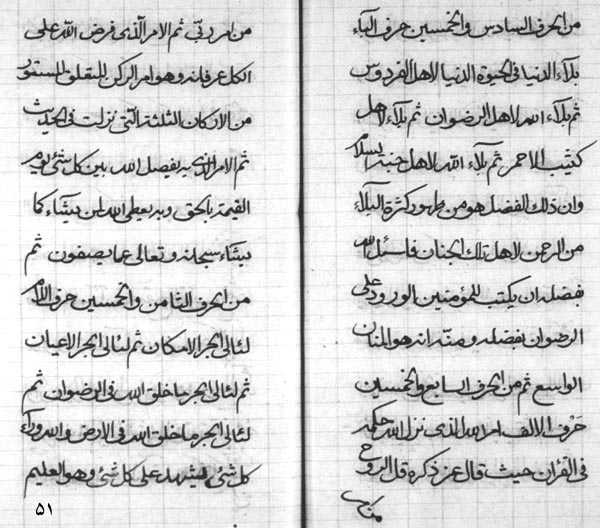 من الحرف السادس والخمسين حرف الباء
بلاء الدنيا في الحيوة الدنيا لاهل الفردوس
ثم بلاء الله لاهل الرضوان ثم بلاء لاهل
كثيب الاحمر ثم بلاء الله لاهل جنة السلام
وان ذلك الفضل هو من ظهور كثرة البلاء
من الرحمن لاهل تلك الجنان فاسئل الله
بفضله ان يكتب للمؤمنين الورود على
الرضوان بفضله ومنه انه هو المنان
الواسع ثم من الحرف السابع والخمسين
حرف الالف امر الله الذى نزل الله حكمه
في القرآن حيث قال عز ذكره قل الروح
من امر
من امر ربّي ثم الامر الذى فرض الله على
الكل عرفانه وهو امر الركن المستور
من الاركان الثلثة التي نزلت في الحديث
ثم الامر الذى به يفصل الله بين كل شئ يوم
القيمة بالحق وبه يعطى الله لمن يشاء كما
يشاء سبحانه وتعالى عما يصفون ثم
من الحرف الثامن والخمسين حرف اللام
لئالى ابحر الامكان ثم لئالى ابحر الاعيان
ثم لئالى ابحر ما خلق الله في الرضوان ثم
لئالى ابحر ما خلق الله في الارض والله وراء
كل شئ يشهد على كل شئ وهو العليم
٥١